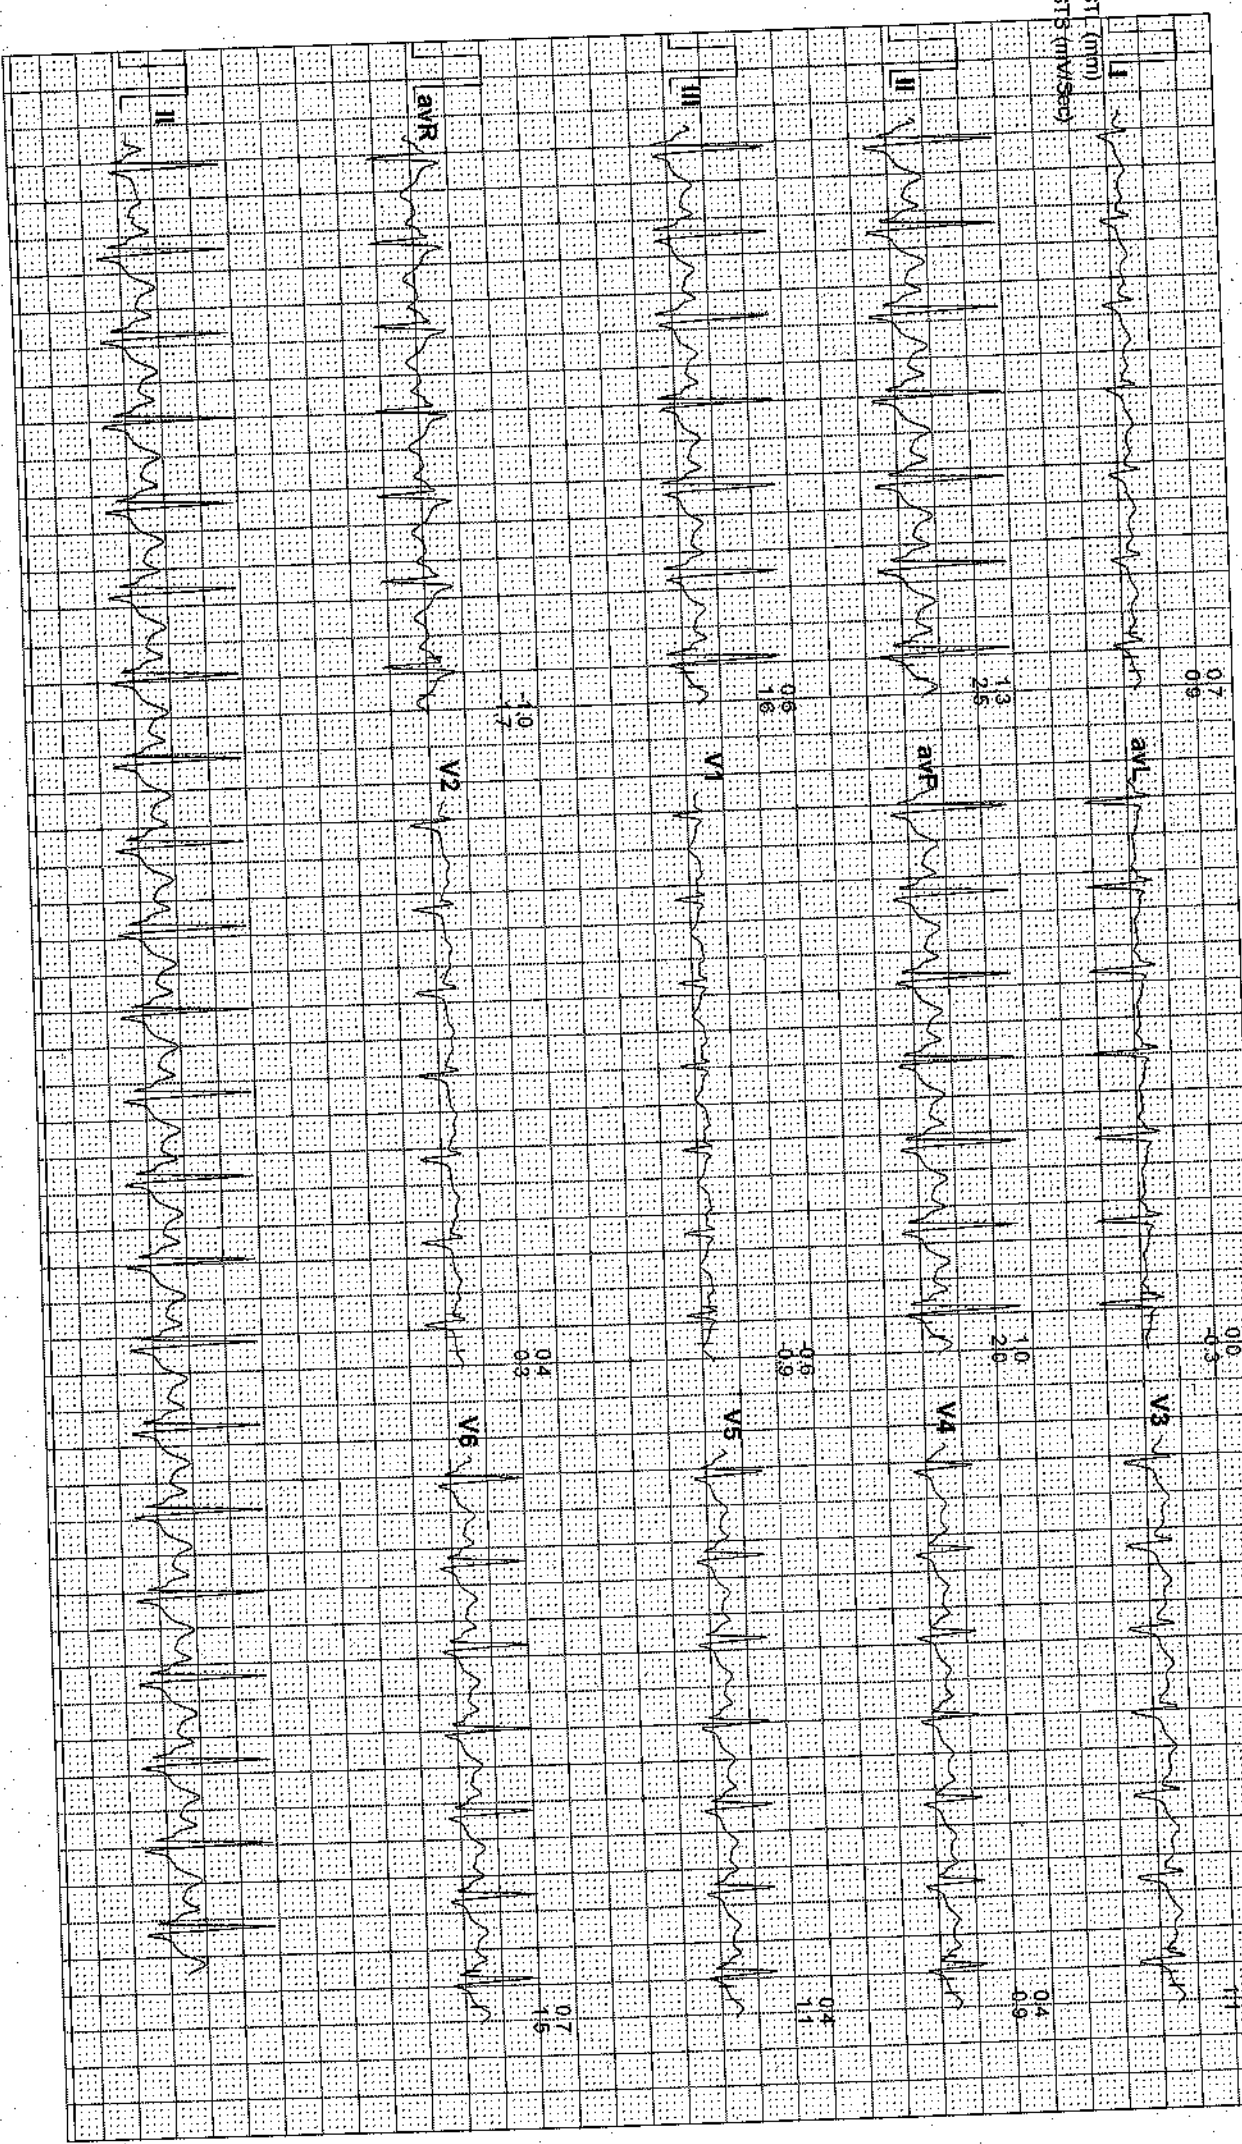 (mm)
STS (mV/Sec)
I
0.7
0.9
avL
0.0
-0.3
V3
1.1
II
1.3
2.5
avF
1.0
2.0
V4
0.4
0.9
III
0.6
1.6
V1
-0.6
-0.9
V5
0.4
1.1
avR
-1.0
-1.7
V2
0.4
0.3
V6
0.7
1.5
II